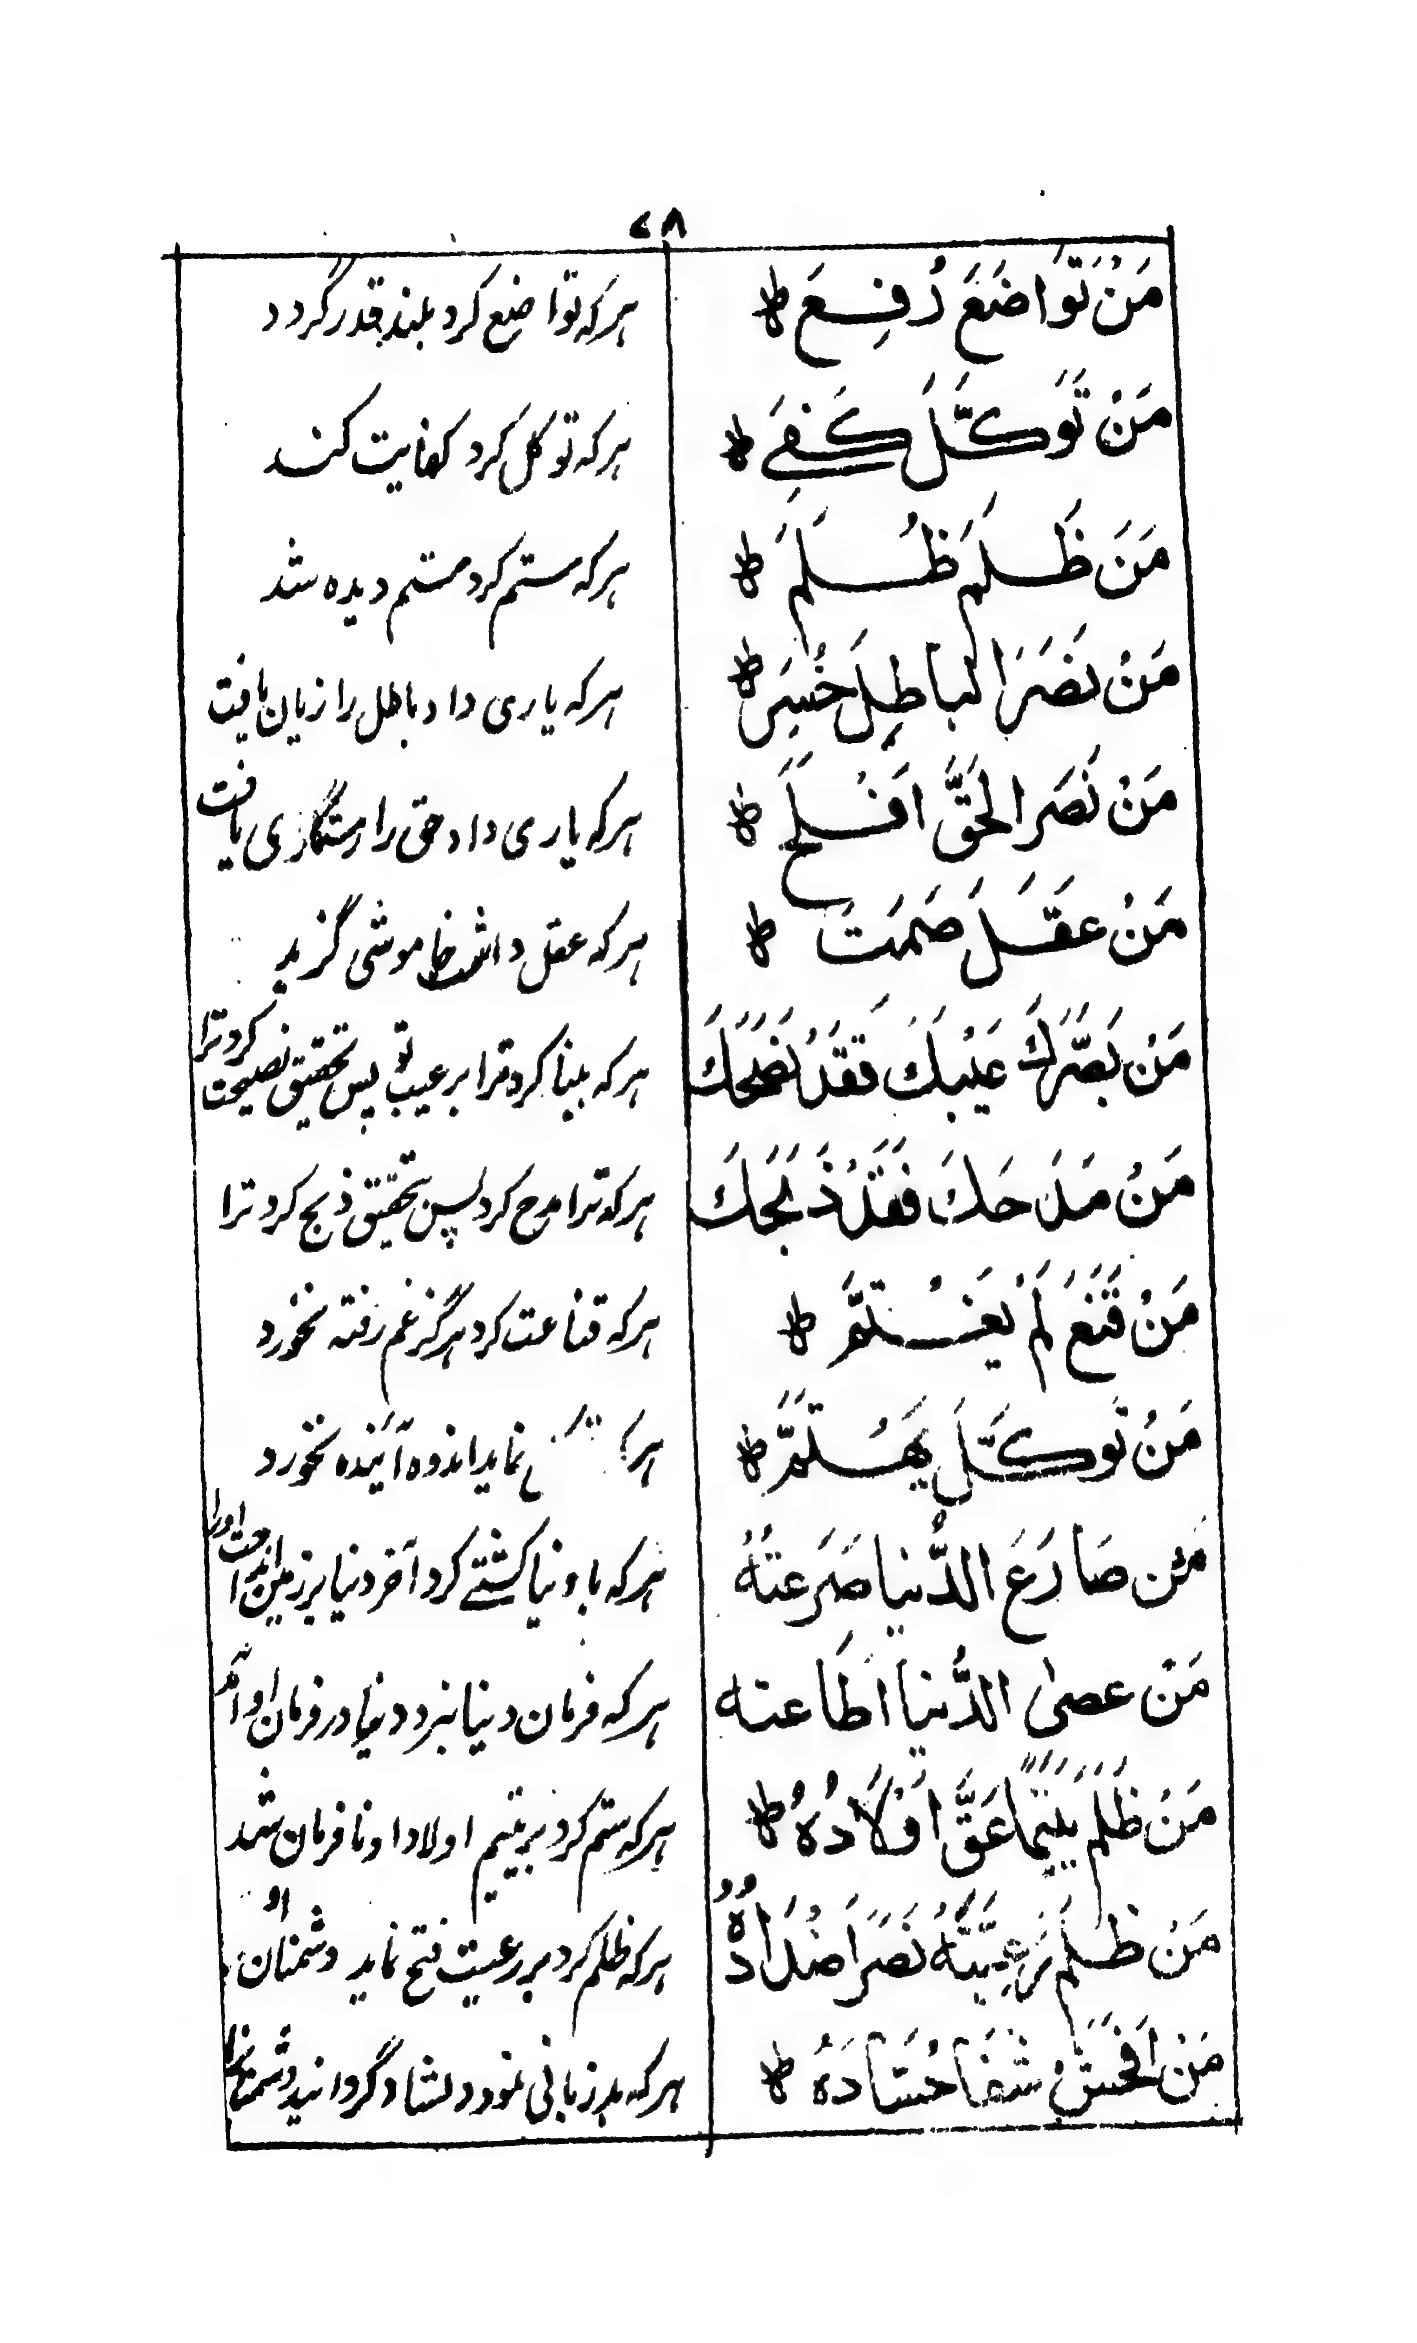 ٧٨
مَنْ تَوَاضَعَ رُفِعَ ط هر که تواضع کرد بلند قدر گردد
مَنْ تَوَكَّلَ كُفِیَ ط هر که توکل کرد کفایت کند
مَنَ ظَلَمَ ظُلِمَ ط هر که ستم کرد ستم دیده شد
مَنْ نَصَرَ الباطِلَ خُسِرَ ط هر که یاری داد باطل را زیان یافت
مَنْ نَصَرَ الحَقَّ اَفْلَحَ ط هر که یاری داد حق را رستگاری یافت
مَنْ عَقَلَ صَمَتَ ط هر که عقل داشت خاموشی گزید
مَنْ بَصَّرَكَ عَيْبَكَ فَقَدْ نَصَحَكَ هر که بینا کرد ترا بر عیب تو پس تحقیق نصیحت کرد ترا
مَنْ مَدَحَكَ فَقَدْ ذَبَحَكَ هر که ترا مدح کرد پس تحقیق ذبح کرد ترا
مَنْ قَنَعَ لَمْ يَغْتَمَّ ط هر که قناعت کرد هرگز غم رفته نخورد
مَنْ تَوَكَّلَ يَهْتَمَّ ط هر که نماید اندوه آینده نخورد
مَنْ صَارَعَ الدُّنيا صَرَعَتهُ هر که با دنیا کشتے کرد آخر دنیا بر زمین انداخت اورا
مَنْ عصىٰ الدُّنيا اطَاعته هر که فرمان دنیا نبرد دنیا در فرمان او آمد
مَنْ ظَلَمَ يَتِيْمًا عَقَّ اَوْلَادُهُ ط هر که ستم کرد بر یتیم اولاد او نافرمان شد
مَنْ ظَلَمَ رَعِيَّتَهُ نَصَرَ اَضْدَادُهُ هر که ظلم کرد بر رعیت فتح نماید دشمنان او
مَنْ اَفْحَشَ شَفَا حُسَّادَهُ ط هر که بدزبانی نمود دلشاد گردانید دشمنان را